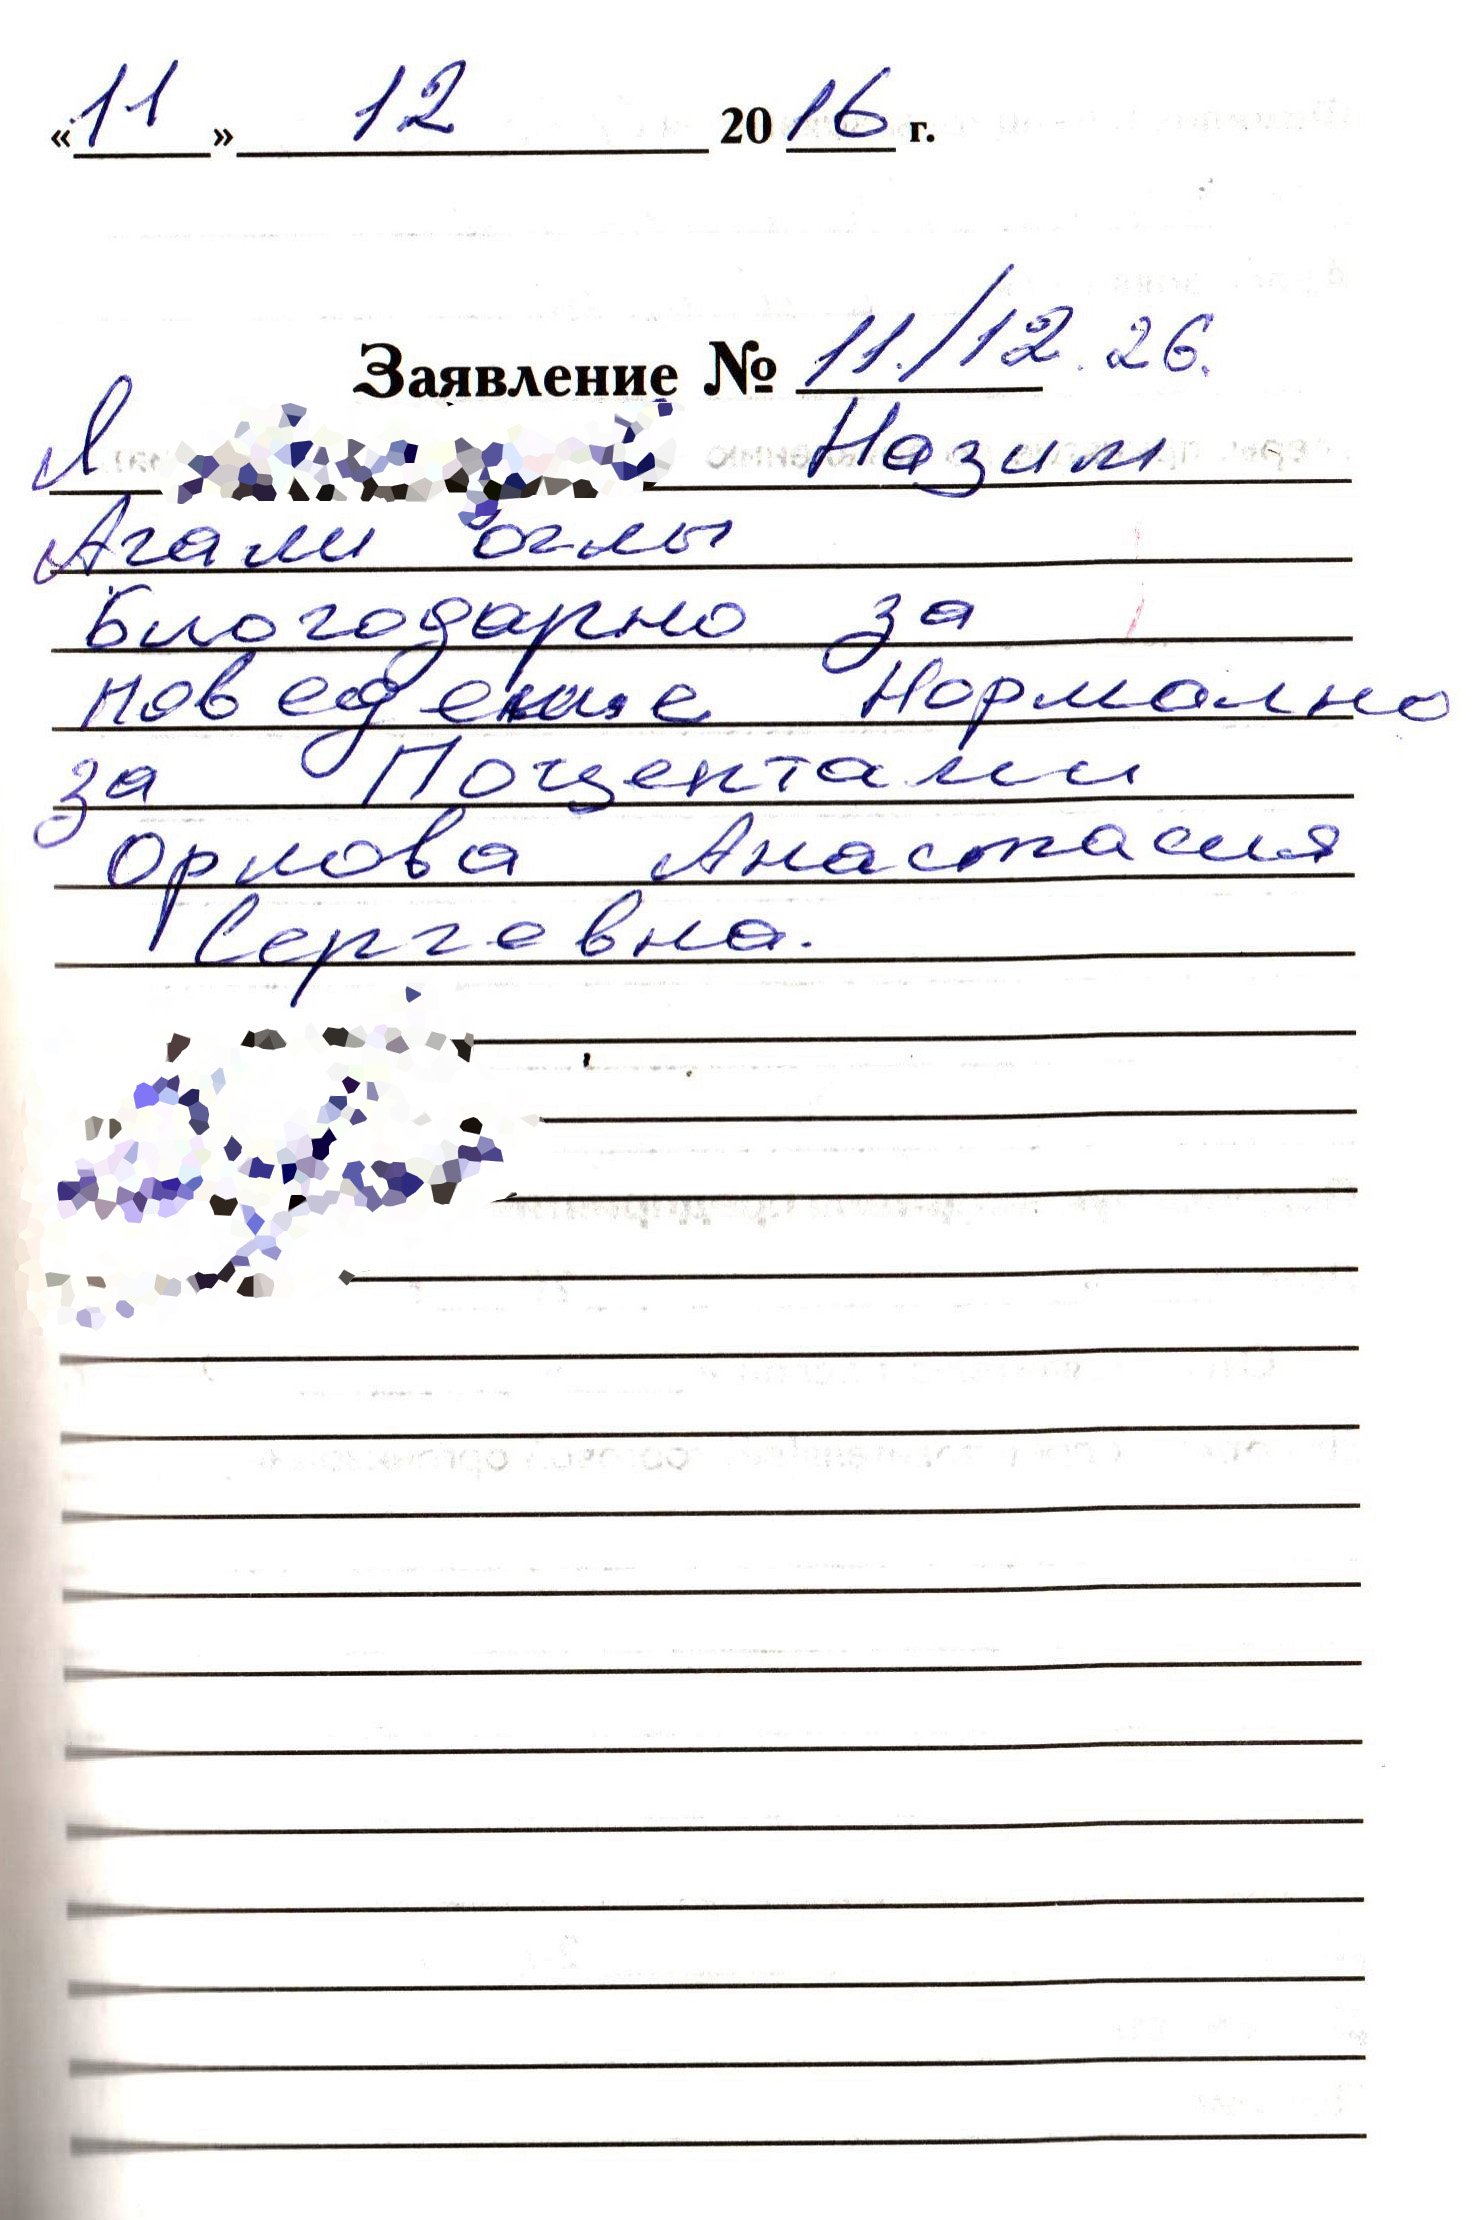 «11» 12 2016 г.
Заявление № 11./12.26.
Я Назим
Агали оглы
Благодарно за
поведение Нормално
за Поцентами
Орлова Анастасия
Сергевна.